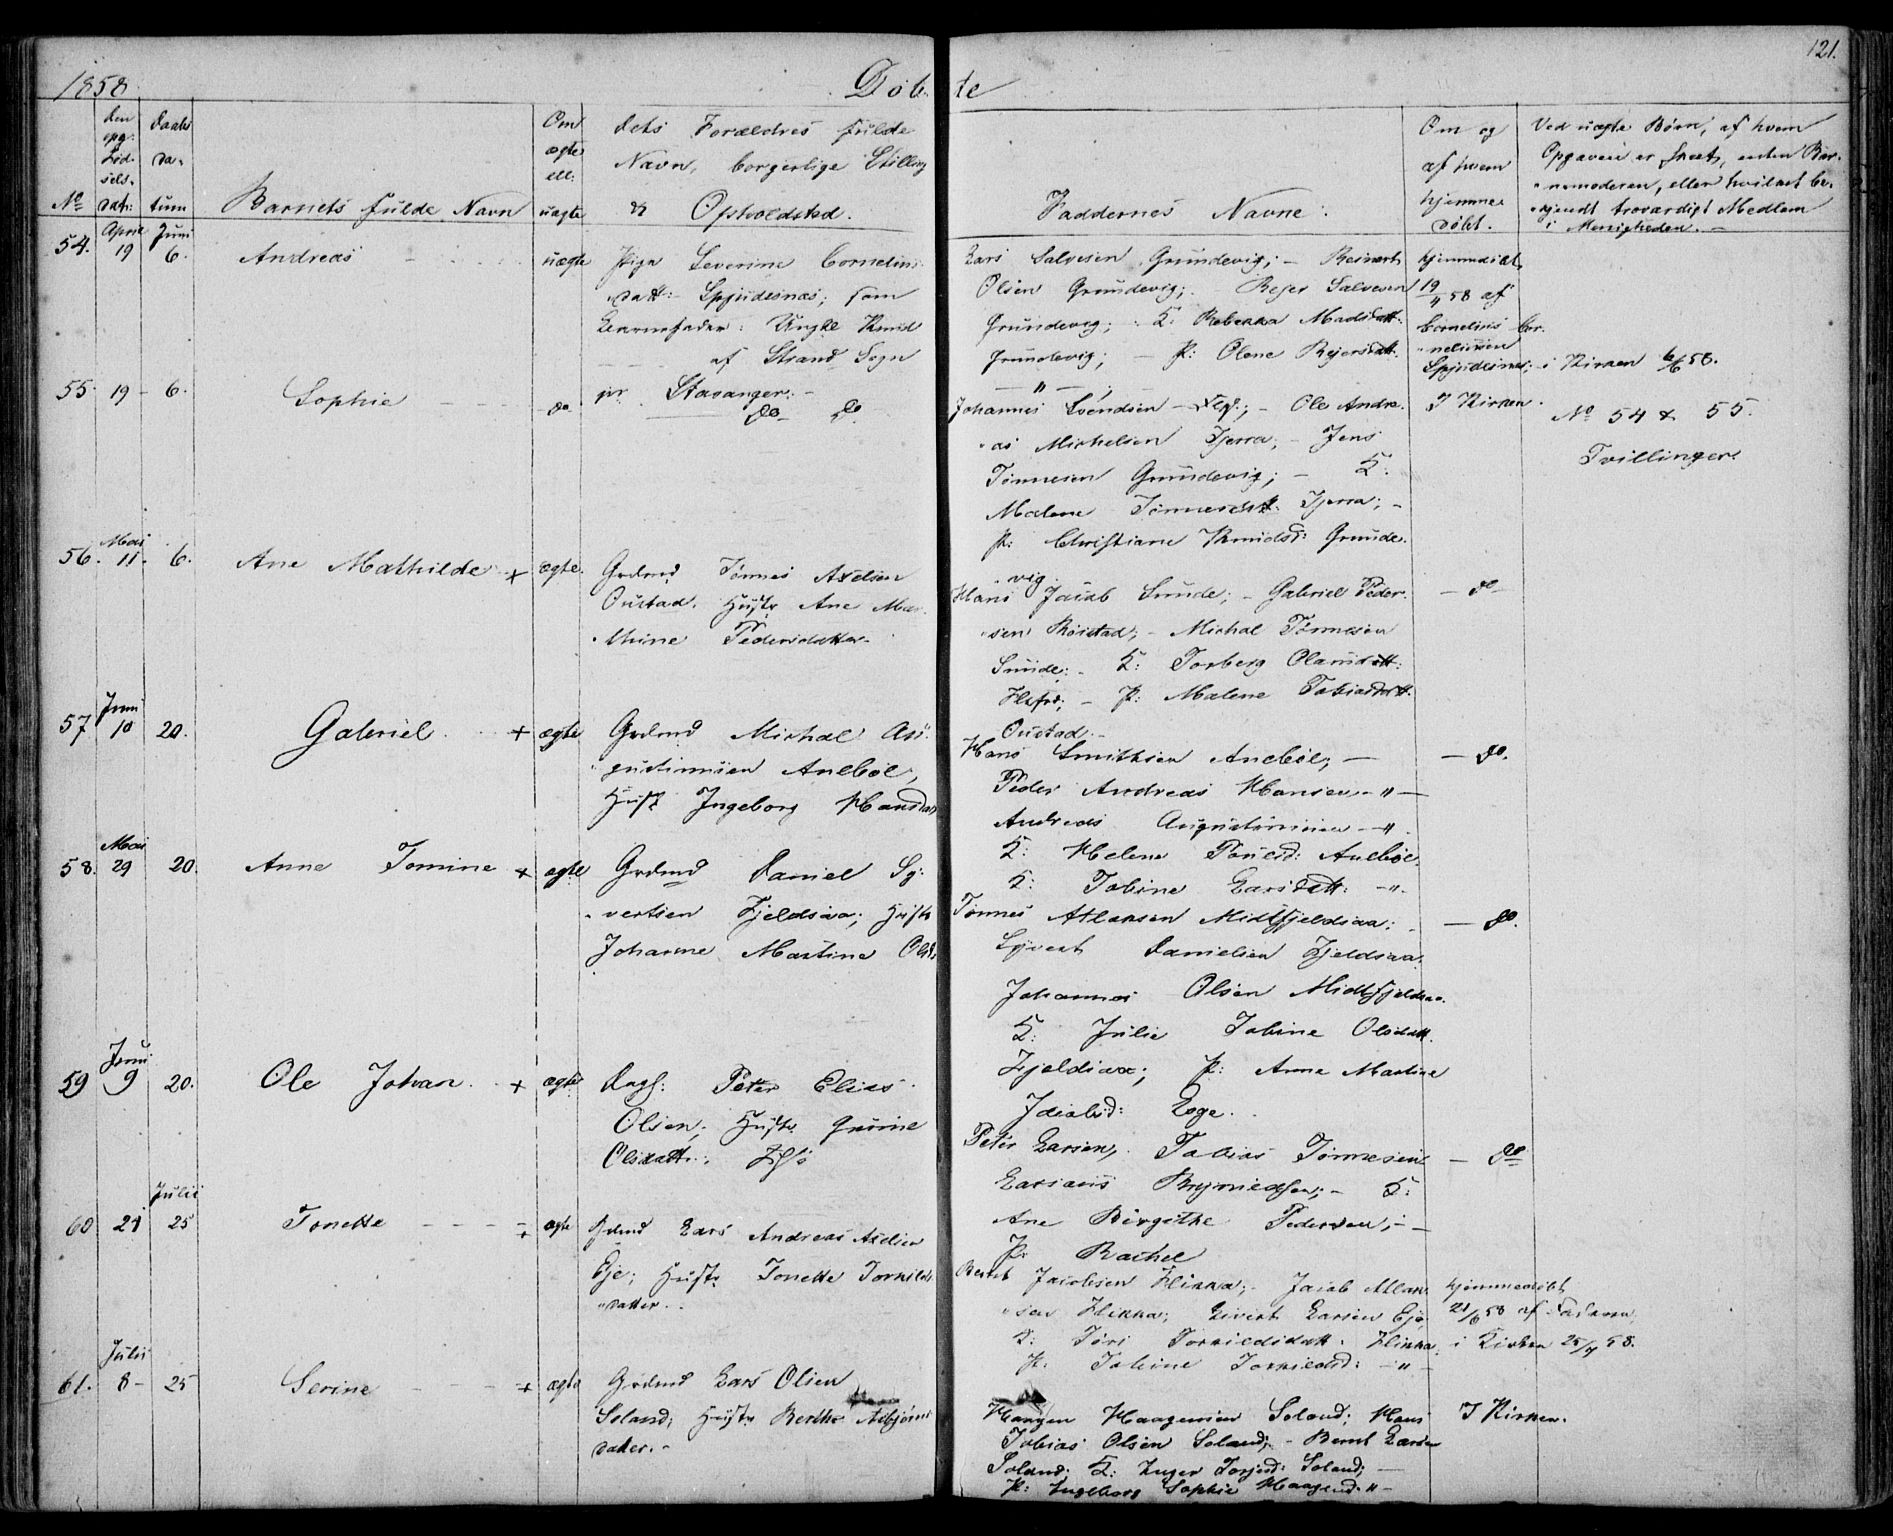 1858
Døb- te
121.
No
den opg: Fød- sels- dat:
Daabs Da- tum
Barnets fulde Navn
Om ægte ell: uægte
Dets Forældres fulde
Navn, borgerlige Stilling
& Opholdsted.
Faddernes Navne.
Om og
af hvem
hjemme-
døbt.
Ved uægte Børn, af hvem
Opgaven er skeet, enten Bar-
nemoderen, eller hvilket be-
kjendt troværdigt Medlem
i Menigheden. -
54. April 19 Juni 6. Andreas uægte
Pige Severine Cornelius-
datt: Spjudesnæs; som
Barnefader: Ungkl Knud
af Strand Sogn
pr Stavanger. -
Lars Salvesen Grundevig; - Reinert
Olsen Grundevig; - Rejer Salvesen
Grundevig; K: Rebekka Madsdatt:
Grundevig; - P: Olene Rejersdatt:
- " -
hjemmedøbt
19/4 58 af
Cornelius Cor-
neliusen
Spjudesnæs; - i Kirken 6/6 58.
55. 19 - 6. Sophie do
do do
Johannes Svendsen - ; - Ole Andre-
as Michelsen Tjerra; - Jens
Tønnesen Grundevig; - K:
Malene Tønnesdtt: Tjerra; -
P: Christiane Knudsd: Grunde-
vig
I Kirken.
No 54 & 55.
Tvillinger.
56. Mai 11. 6. Ane Mathilde + ægte.
Grdmd Tønnes Axelsen
Oustad. Hustr Ane Mar-
thine Pedersdatter -
Hans Jacob Sunde; - Gabriel Peder-
sen Røistad; - Michal Tønnesen
Sunde; - K: Torborg Olausdtt:
; - P: Malene Tobiasdatt:
Oustad. -
- do -
57. Juni 10 20. Gabriel + ægte
Grdmd Michal Au-
gustinusen Aneböe,
Hust Ingeborg Hansdat
Hans Smithsen Aneböe; -
Peder Andreas Hansen - " -
Andreas Augustinusen - " -
K: Helene Poulsd: Aneböe.
K: Tobine Larsdatt: - " -
- do.
58. Mai 29 20. Anne Tomine + ægte
Grdmd Daniel Sy-
vertsen Fjeldsaa; Hustr
Johanne Martine Olsd
Tønnes Atlaksen Midtfjeldsaa;
Syvert Danielsen Fjeldsaa.
Johannes Olsen Midtfjeldsaa.
K: Julie Tobine Olsdatt.
Fjeldsaa; P: Anne Martine
Jacobsd: Ege.
- do.
59 Juni 9 20. Ole Johan + ægte
Dagl: Peter Elias
Olsen; Hustr Gurine
Olsdatt;
Peter Larsen, Tobias Tønnesen
K:
Ane Birgithe Pedersen; -
P: Rachel
- do
60 21 Julii 25 Tonette + ægte
Grdmd Lars Andreas Axelsen
Eje; Hustr Tonette Torkilds-
datter.
Berent Jacobsen Flikka; - Jacob Atlak-
sen Flikka; Sivert Larsen Eje
K: Tøri Torkildsdatt. Flikka,
P: Tobine Torkildsd: - " -
hjemmedøbt
21/6 58 af Faderen,
i Kirken 25/7 58.
61. Julii 8 - 25 Serine + ægte
Grdmd Lars Olsen
Soland; Hustr Berthe Asbjørns-
datter. -
Haagen Haagensen Soland; Hans
Tobias Olsen Soland; - Bernt Larsen
Soland; K: Inger Torjusd: Soland; -
P: Ingeborg Sophie Haagensd. " -
I Kirken.